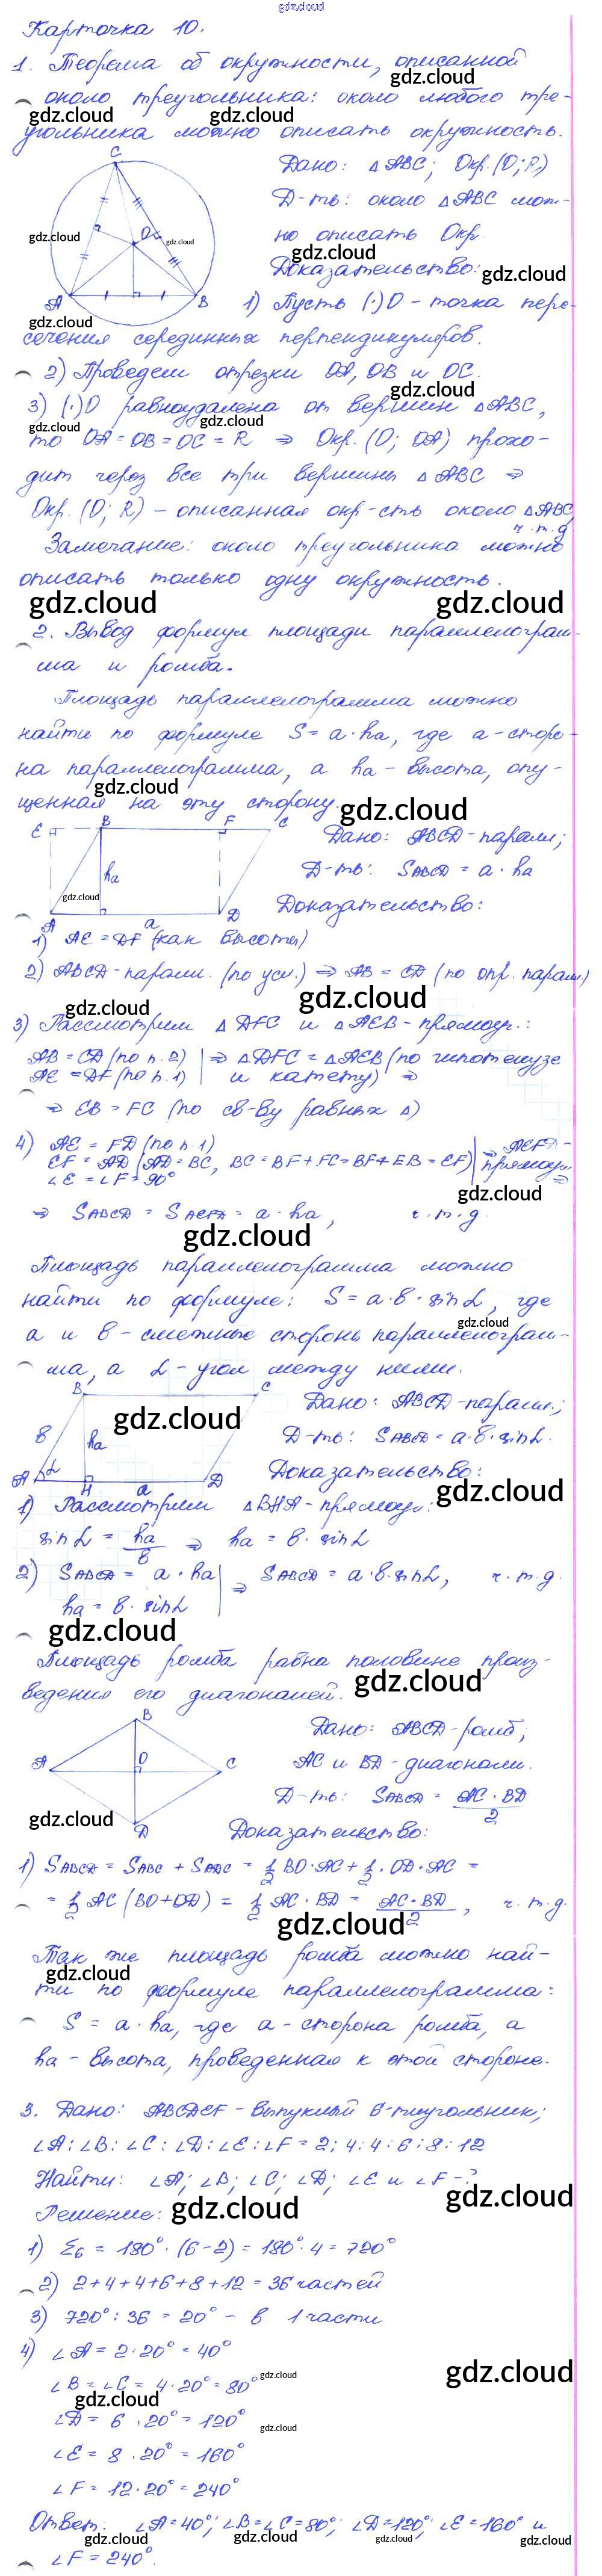 gdz.cloud
Карточка 10.
1. Теорема об окружности, описанной
около треугольника: около любого тре-
угольника можно описать окружность.
Дано: △ABC; Окр.(O;R)
Д-ть: около △ABC мож-
но описать Окр.
Доказательство:
C
O
A
B
1) Пусть (·)O - точка пере-
сечения серединных перпендикуляров.
2) Проведем отрезки OA, OB и OC.
3) (·)O равноудалена от вершин △ABC,
то OA = OB = OC = R ⇒ Окр. (O; OA) прохо-
дит через все три вершины △ABC ⇒
Окр. (O; R) - описанная окр-сть около △ABC
ч.т.д.
Замечание: около треугольника можно
описать только одну окружность.
gdz.cloud gdz.cloud
2. Вывод формул площади параллелограм-
ма и ромба.
Площадь параллелограмма можно
найти по формуле S = a·ha, где a - сторо-
на параллелограмма, а ha - высота, опу-
щенная на эту сторону.
gdz.cloud gdz.cloud
E B F C
ha
A a D
Дано: ABCD - паралл;
Д-ть: SABCD = a · ha
Доказательство:
1) AE = DF (как высоты)
2) ABCD - паралл. (по усл.) ⇒ AB = CD (по опр. паралл)
3) Рассмотрим △DFC и △AEB - прямоуг.:
AB = CD (по п. 2) | ⇒ △DFC = △AEB (по гипотенузе
AE = DF (по п. 1) | и катету) ⇒
⇒ EB = FC (по св-ву равных △)
4) AE = FD (по п. 1)
EF = AD (AD = BC, BC = BF + FC = BF + EB = EF) | ⇒ AEFD - прямоуг. ⇒
∠E = ∠F = 90°
⇒ SABCD = SAEFD = a · ha, ч.т.д.
gdz.cloud
Площадь параллелограмма можно
найти по формуле: S = a·b·sinα, где
a и b - смежные стороны параллелограм-
ма, а α - угол между ними.
B C
b ha
A α H a D
Дано: ABCD - паралл.;
Д-ть: SABCD = a·b·sinα.
Доказательство:
1) Рассмотрим △BHA - прямоуг.:
sinα = ha/b ⇒ ha = b · sinα
2) SABCD = a · ha | ⇒ SABCD = a·b·sinα, ч.т.д.
ha = b · sinα
gdz.cloud
Площадь ромба равна половине произ-
ведения его диагоналей.
gdz.cloud
B
A O C
D
Дано: ABCD - ромб;
AC и BD - диагонали.
Д-ть: SABCD = AC · BD / 2
Доказательство:
1) SABCD = SABC + SADC = 1/2 BO·AC + 1/2 · OD·AC =
= 1/2 AC (BO+OD) = 1/2 AC · BD = AC·BD / 2, ч.т.д.
gdz.cloud
Так же площадь ромба можно най-
ти по формуле параллелограмма:
S = a · ha, где a - сторона ромба, а
ha - высота, проведенная к этой стороне.
3. Дано: ABCDEF - выпуклый 6-тиугольник;
∠A : ∠B : ∠C : ∠D : ∠E : ∠F = 2; 4 : 4 : 6 : 8 : 12
Найти: ∠A; ∠B; ∠C; ∠D; ∠E и ∠F - ?
Решение:
gdz.cloud gdz.cloud
1) Σ6 = 180° · (6-2) = 180° · 4 = 720°
2) 2+4+4+6+8+12 = 36 частей
3) 720° : 36 = 20° - в 1 части
4) ∠A = 2 · 20° = 40°
∠B = ∠C = 4 · 20° = 80°
∠D = 6 · 20° = 120°
∠E = 8 · 20° = 160°
∠F = 12 · 20° = 240°
Ответ: ∠A = 40°; ∠B = ∠C = 80°; ∠D = 120°; ∠E = 160° и
∠F = 240°.
gdz.cloud gdz.cloud gdz.cloud gdz.cloud